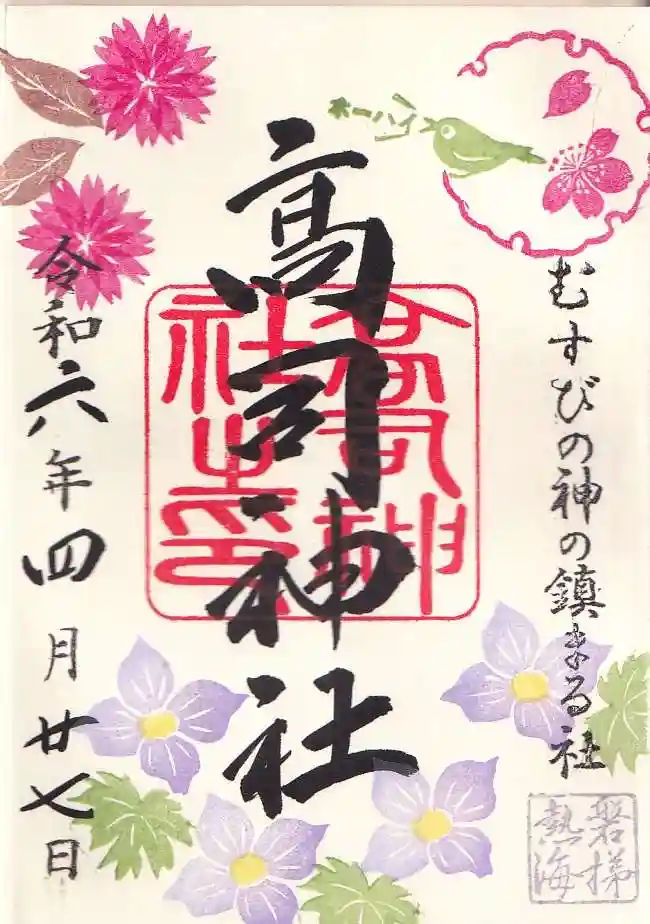 むすびの神の鎮まる社
高司神社
令和六年四月廿七日
高司神
社之印
ホーハイ
磐梯
熱海